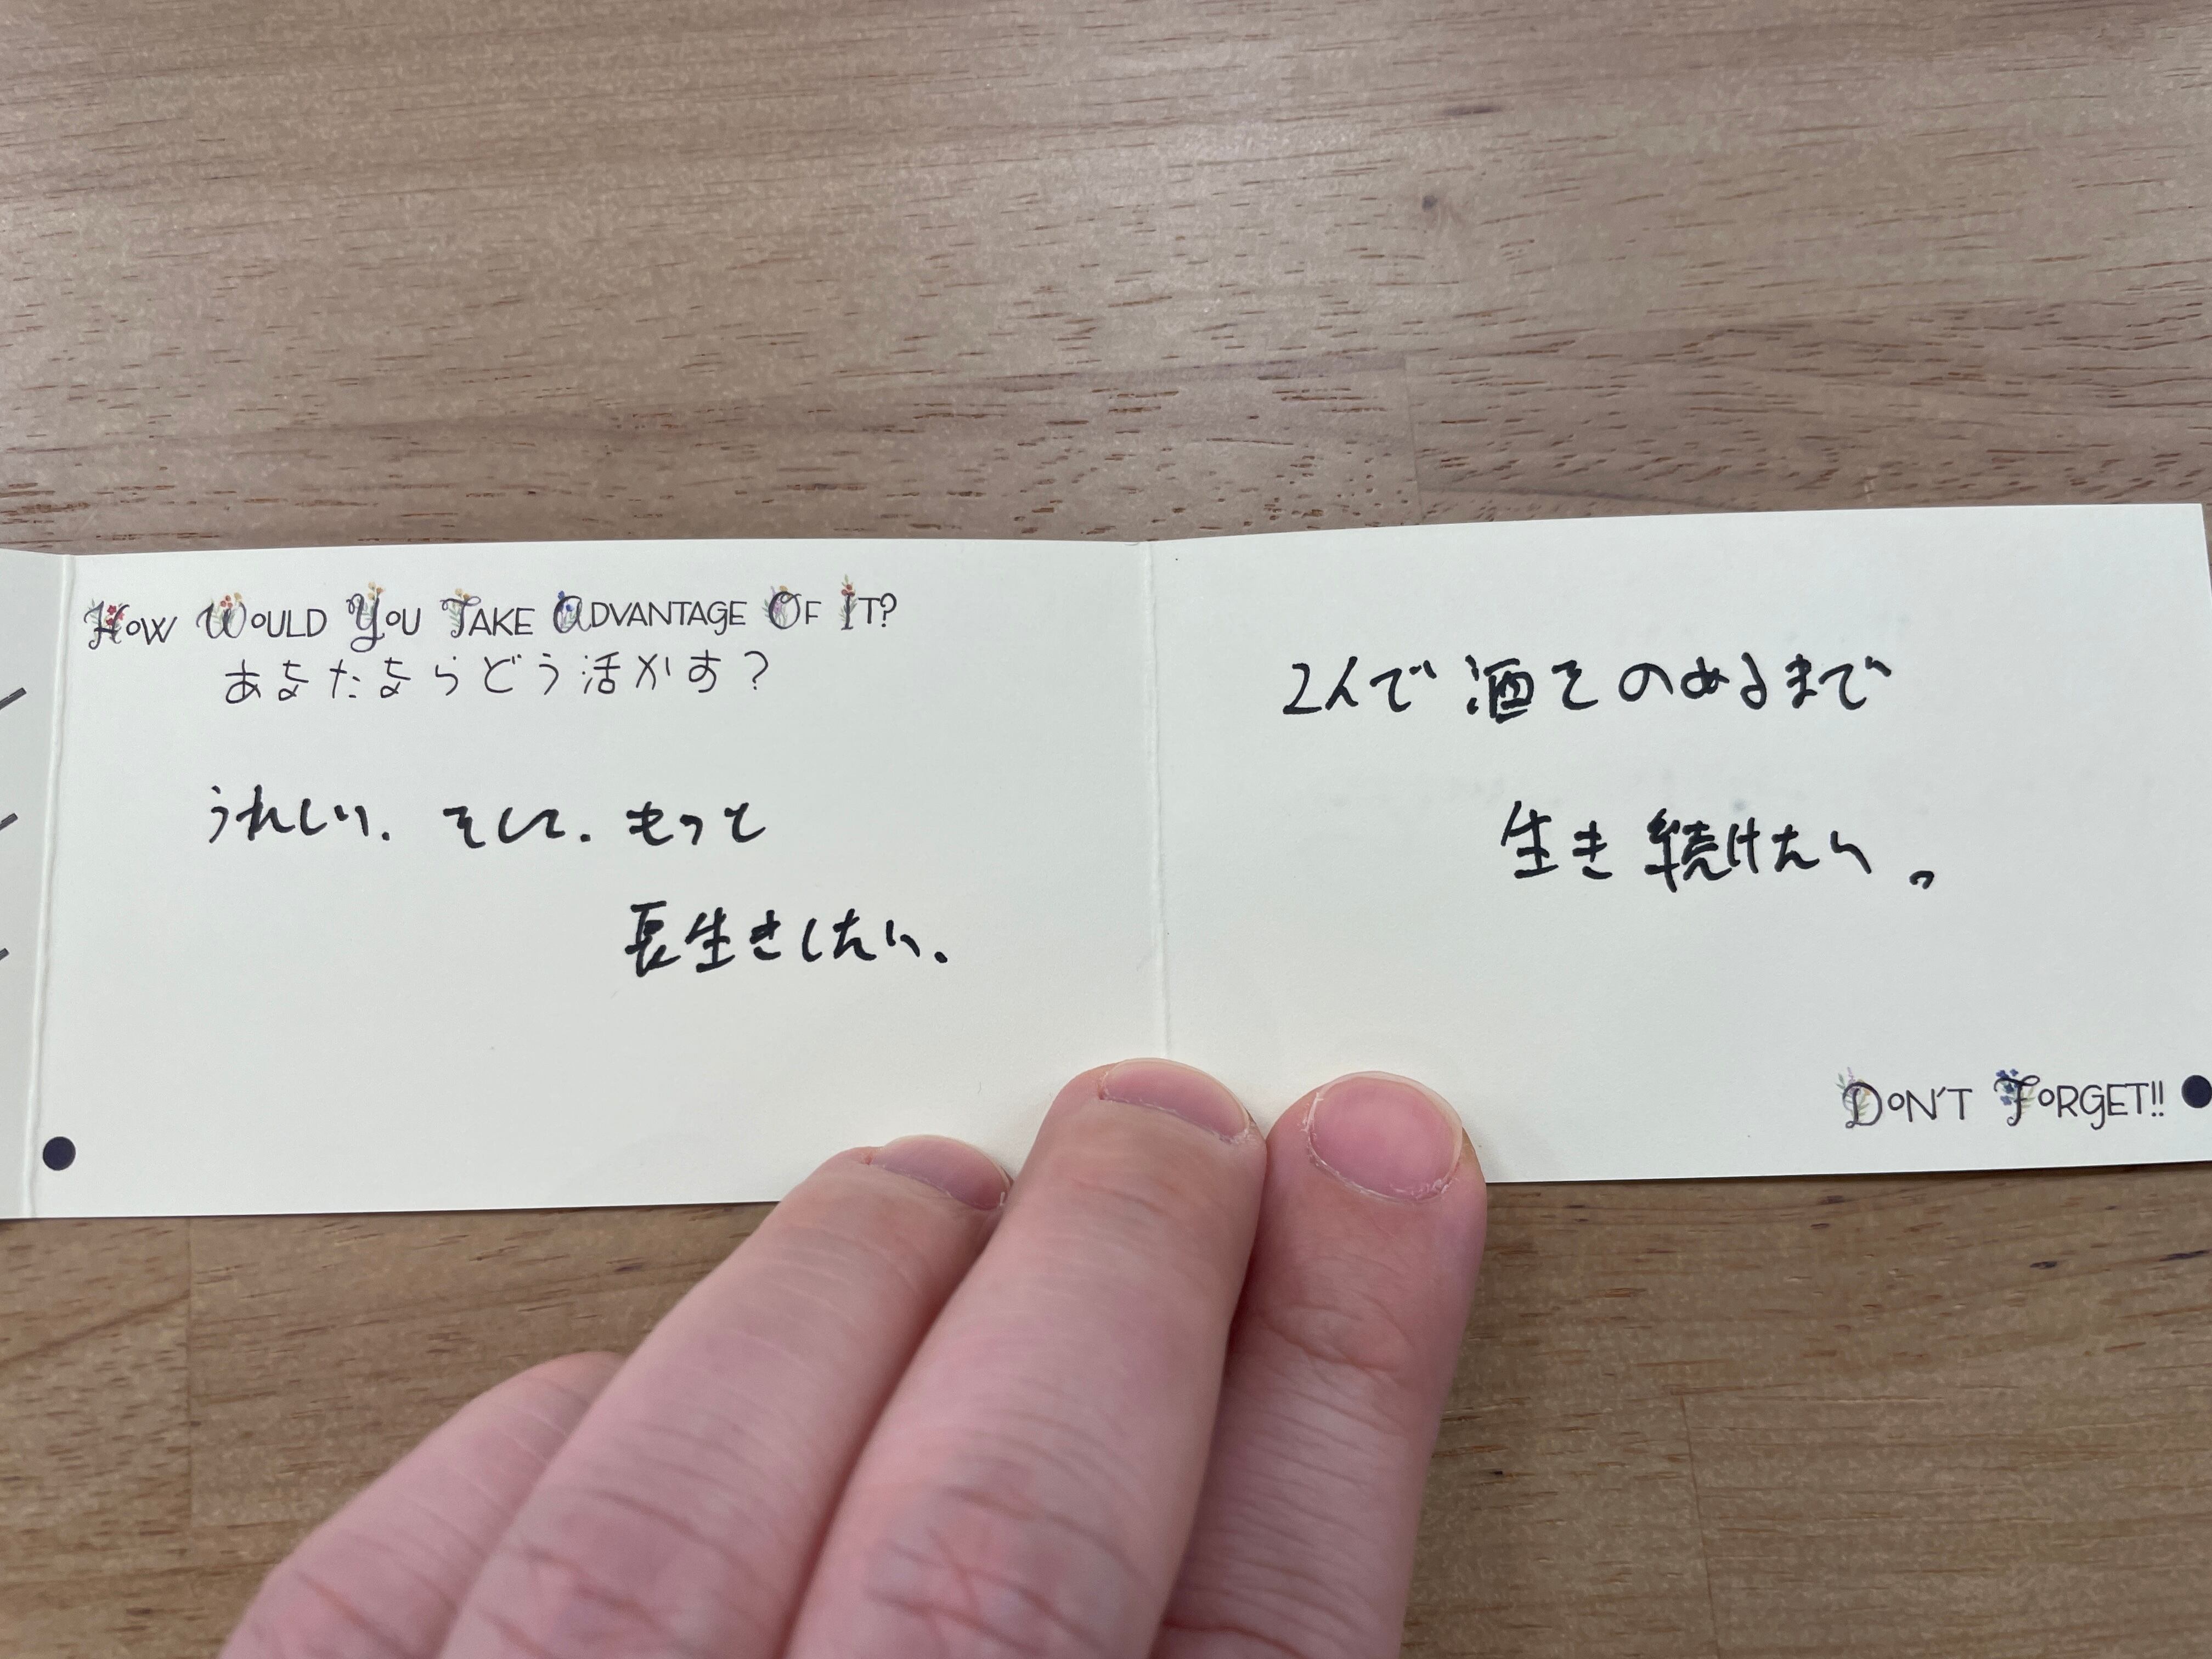 How Would You Take Advantage Of It?
あなたならどう活かす?
うれしい. そして. もっと
長生きしたい.
2人で酒をのめるまで
生き続けたい。
Don't Forget!!